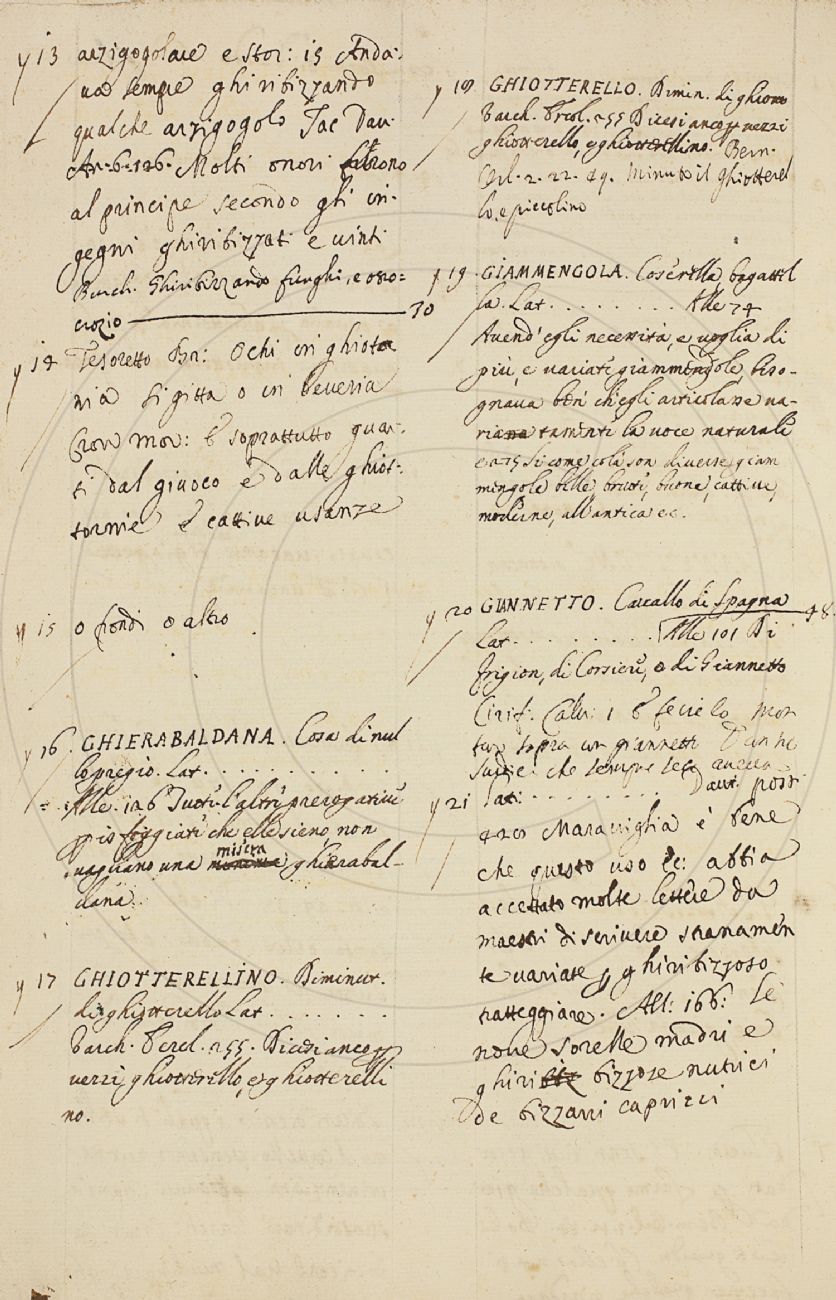 y 13 arzigogolare e Stor: 15 Anda-
va sempre ghiribizzando
qualche arzigogolo Tac Dav.
An. 6. 126. Molti onori furono
al principe secondo gl' in-
gegni ghiribizzati e vinti
Burch. Ghiribizzando funghi, e
30
y 14 Tesoretto Br: O chi in ghiotto
nia si gitta o in beveria
Cron Mor: E soprattutto guar-
ti dal giuoco e dalle ghiot-
tornie e cattive usanze
y 15 o fondi o altro
y 16. GHIERABALDANA. Cosa di nul
lo pregio. Lat. . . . . . . . . . .
Alle. 126 Tutti l'altri prerogative
più foggiati che elle sieno, non
vagliano una misera ghierabal-
dana.
y 17 GHIOTTERELLINO. Diminut.
di ghiotterello Lat . . . . . . .
Varch. Ercol. 255. Dicesi anco p
vezzi, ghiotterello, e ghiotterelli
no.
y 18 GHIOTTERELLO. Dimin. di ghiotto
Varch. Ercol. 255 Dicesi anco p vezzi
ghiotterello, e ghiotterellino. Bern.
Orl. 2. 22. 49. Minuto il ghiotterel
lo, e piccolino
y 19 GIAMMENGOLA. Coserella, bagattel
la. Lat. . . . . . . . . Alle 74
Avend' egli necessità, e voglia di
più, e variate giammengole biso-
gnava ben ch'egli articolasse va-
riatamente la voce naturale
e 275 Si come cola son diverse giam
mengole belle, brutte, buone, cattive,
moderne, all'antica ec.
y 20 GIANNETTO. Cavallo di Spagna
48.
Lat. . . . . . . . . . Alle 101 Di
frigion, di Corsieri, o di Giannetto
Cirif: Calv: 1 E fecielo mon
tar sopra un giannetto
che sempre seco aveva
y 21 Lat: . . . . . . . . . Dav. post.
420 Maraviglia è bene
che questo uso ec: abbia
accettato molte lettere da
maestri di scrivere stranamen
te variate p ghiribizzoso
tratteggiare. All: 166: Le
nove sorelle madri e
ghiribizzose nutrici
De bizzarri capricci